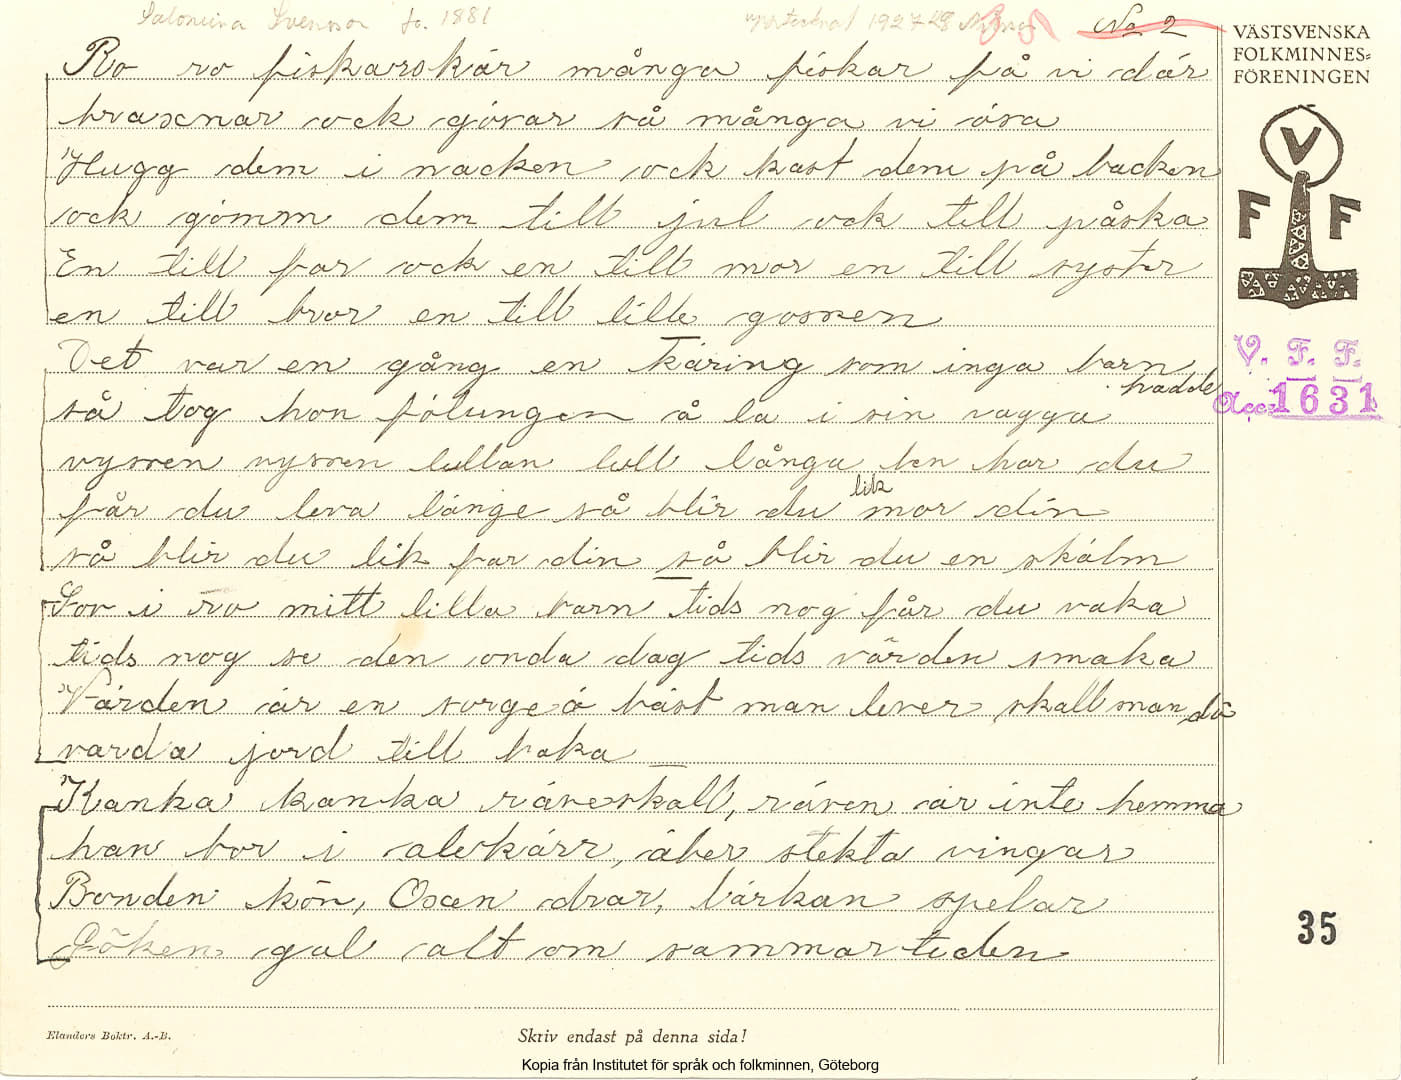 Salomina Svensson fö. 1881
1927
No 2
Ro ro fiskarskär många fiskar få vi där
braxnar ock gösar så många vi ösa
Hugg dem i nacken ock kast dem på backen
ock gömm dem till jul ock till påska
En till far ock en till mor en till syster
en till bror en till lille gossen
Det var en gång en käring som inga barn
hadde
så tog hon fölungen å la i sin vagga
vyssen vyssen lullan lull långa ben har du
får du leva länge så blir du lik mor din
så blir du lik far din så blir du en skälm
Sov i ro mitt lilla barn tids nog får du vaka
tids nog se den onda dag tids värden smaka
Värden är en sorgeö bäst man lever skall man dö
varda jord till baka
Kanka kanka räveskall, räven är inte hemma
han bor i alekärr, äber stekta vingar
Bonden kön, Oxen drar, lärkan spelar
Göken gal alt om sammartiden
VÄSTSVENSKA
FOLKMINNES=
FÖRENINGEN
V
F F
V. F. F.
Acc: 1631
35
Elanders Boktr. A.-B.
Skriv endast på denna sida!
Kopia från Institutet för språk och folkminnen, Göteborg